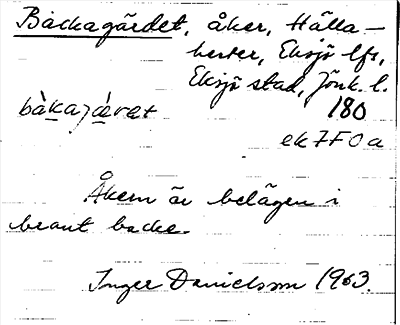 Backagärdet, åker, Hälla-
berter, Eksjö lfs,
Eksjö stad, Jönk. l.
bàkajæ̀ret 180
ek7F0a
Åkern är belägen i
brant backe.
Inger Danielsson 1963.